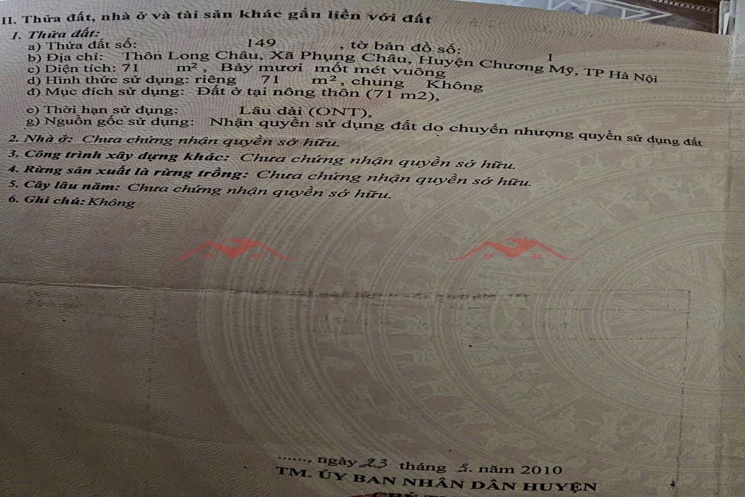 II. Thửa đất, nhà ở và tài sản khác gắn liền với đất
1. Thửa đất:
a) Thửa đất số: 149 , tờ bản đồ số: 1
b) Địa chỉ: Thôn Long Châu, Xã Phụng Châu, Huyện Chương Mỹ, TP Hà Nội
c) Diện tích: 71 m², Bảy mươi mốt mét vuông
d) Hình thức sử dụng: riêng 71 m², chung Không
đ) Mục đích sử dụng: Đất ở tại nông thôn (71 m2),
e) Thời hạn sử dụng: Lâu dài (ONT),
g) Nguồn gốc sử dụng: Nhận quyền sử dụng đất do chuyển nhượng quyền sử dụng đất
2. Nhà ở: Chưa chứng nhận quyền sở hữu.
3. Công trình xây dựng khác: Chưa chứng nhận quyền sở hữu.
4. Rừng sản xuất là rừng trồng: Chưa chứng nhận quyền sở hữu.
5. Cây lâu năm: Chưa chứng nhận quyền sở hữu.
6. Ghi chú: Không
......, ngày 23 tháng 5. năm 2010
TM. ỦY BAN NHÂN DÂN HUYỆN